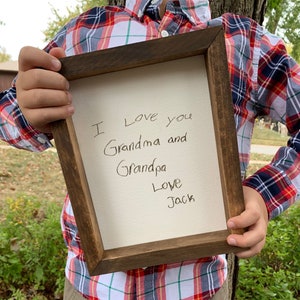 I Love you
Grandma and
Grandpa
Love
Jack